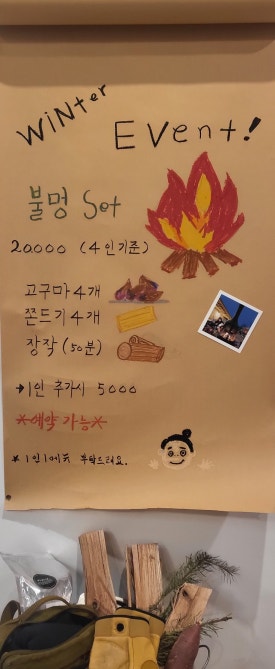 Winter
Event!
불멍 Set
20000 (4인기준)
고구마 4개
쫀드기 4개
장작 (50분)
→1인 추가시 5000
*예약 가능*
* 1인 1메뉴 부탁드려요.